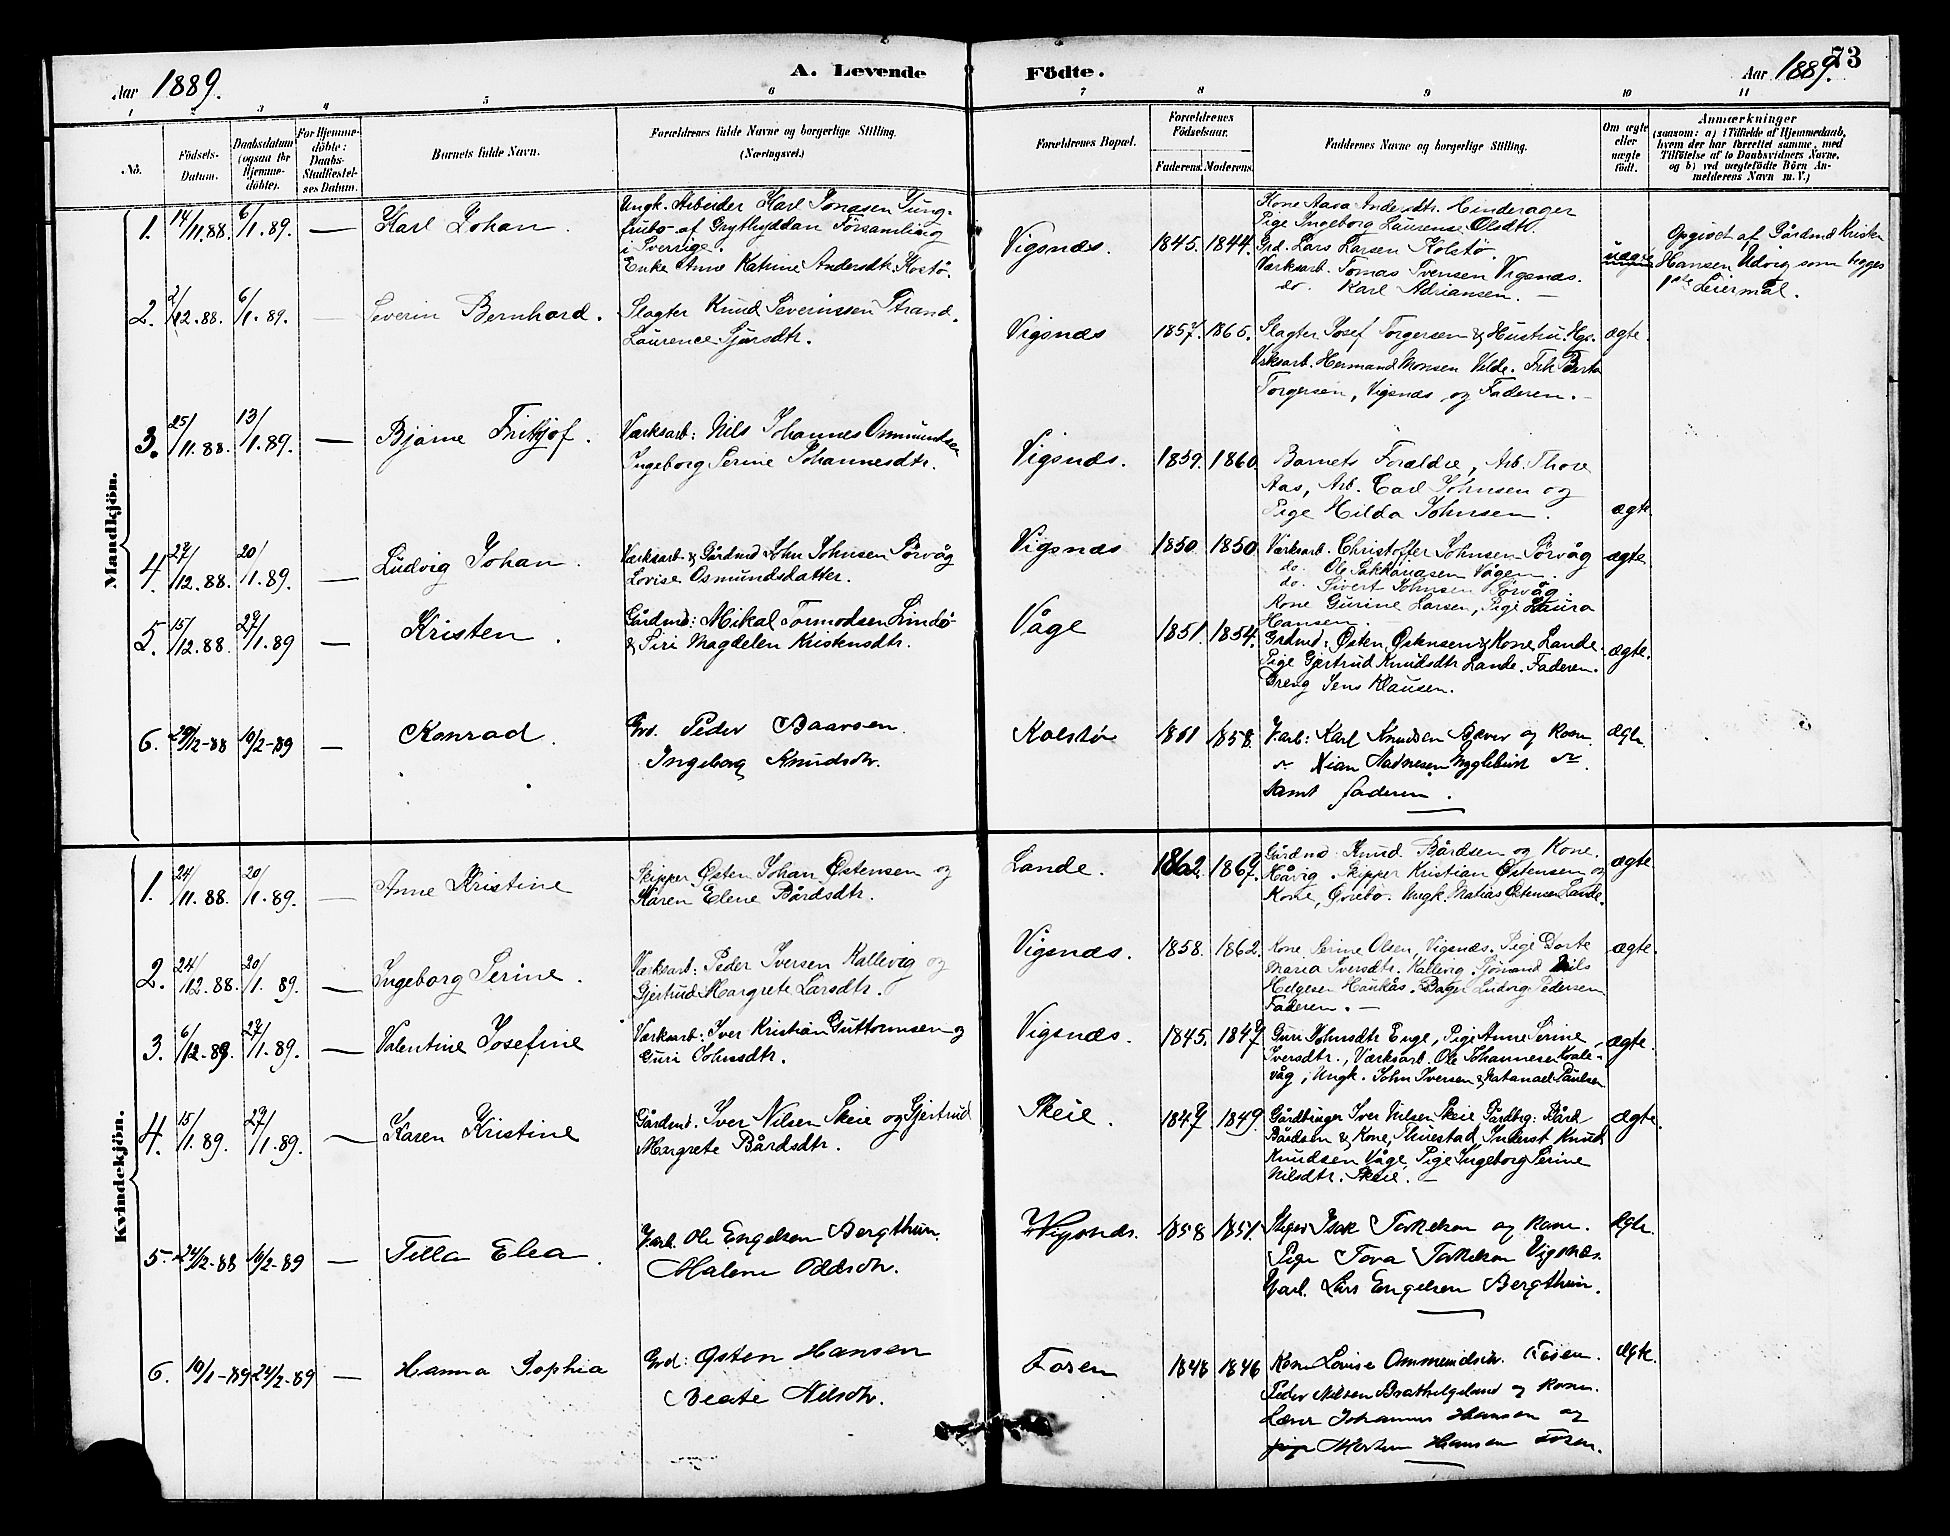 73
Aar 1889. A. Levende Födte. Aar 1889.
1 2 3 4 5 6 7 8 9 10 11
No. Födsels-Datum. Daabsdatum (ogsaa for Hjemmedöbte). For Hjemmedöbte: Daabs-Stadfæstelses Datum. Barnets fulde Navn. Forældrenes fulde Navne og borgerlige Stilling. (Næringsvei.) Forældrenes Bopæl. Forældrenes Födselsaar. Faderens. Moderens. Faddernes Navne og borgerlige Stilling. Om ægte eller uægte födt. Anmærkninger (saasom: a) i Tilfælde af Hjemmedaab, hvem der har forrettet samme, med Tilföielse af to Daabsvidners Navne, og b) ved uægtefödte Börn Anmelderens Navn m. V.)
Mandkjön.
1. 14/11.88. 6/1.89. — Karl Johan.
Ungk. Arbeider Karl Jonassen
af Grythyddan Församling
i Sverrige.
Enke Anne Katrine Andersdtr. Kostö.
Vigsnæs. 1845. 1844.
Kone Aasa Andersdtr. Hinderager
Pige Ingeborg Laurense Olsdtr.
Grd. Lars Larsen Kolstö.
Værksarb. Tomas Svensen Vigsnæs.
do. Karl Adriansen. —
uægte
Opgivet af Gårdmd Kristen
Hansen Udvig som
Leiermål.
2. 2/12.88. 6/1.89. — Severin Bernhard.
Slagter Knud Severinsen Strand.
Laurence Sjursdtr.
Vigsnæs 1857. 1865.
Slagter Josef Torgersen & Hustru.
Værksarb. Hermand Monsen Velde. Frk Berta
Torgersen, Vigsnæs og Faderen. —
ægte.
3. 25/11.88. 13/1.89. — Bjarne Fritjof.
Værksarb: Nils Johannes Osmundsen
Ingeborg Serine Johannesdtr.
Vigsnæs. 1859. 1860.
Barnets Forældre, Arb. Thore
Aas, Arb. Carl Johnsen og
Pige Hilda Johnsen.
ægte
4. 27/12.88. 20/1.89. — Ludvig Johan.
Værksarb & Gårdmd John Johnsen Sörvåg
Lovise Osmundsdatter.
Vigsnæs 1850. 1850.
Værksarb. Christoffer Johnsen Sörvåg
do. Ole Sakkariasen Vågen.
do. Sivert Johnsen Sörvåg.
Kone Gurine Larsen, Pige Laura
Hansen. —
ægte
5. 15/12.88. 27/1.89 — Kristen.
Gårdmd: Mikal Tormodsen Lindö
& Siri Magdelen Kristensdtr.
Våge 1851. 1854.
Grdmd: Østen Østensen & Kone Lande.
Pige Gjertrud Knudsdtr Lande. Faderen.
Dreng Jens Klausen.
ægte.
6. 29/12-88 10/2-89 — Konrad.
Grd. Peder Baarsen.
Ingeborg Knudsdtr.
Kolstö 1858.
V.arb: Karl Knudsen Bæver og Kone.
samt faderen.
ægte.
Kvindekjön.
1. 24/11.88. 20/1.89. — Anne Kristine
Skipper Østen Johan Østensen og
Karen Elene Bårdsdtr.
Lande. 1862. 1867.
Gårdmd. Knud Bårdsen og Kone.
Håvig. Skipper Kristian Østensen og
Kone, Ørebö. Ungk. Matias Østensen Lande.
ægte
2. 24/12.88. 20/1.89. — Ingeborg Serine.
Værksarb: Peder Iversen Kallevig og
Gjertrud Margrete Larsdtr.
Vigsnæs. 1858. 1862.
Kone Serine Olsen, Vigsnæs. Pige Dorte
Maria Iversdtr. Kallevig. Sjömand Nils
Helgesen Haukås. Bager Ludvig Pedersen
Faderen. —
ægte.
3. 6/12.89. 27/1.89. — Valentine Josefine
Værksarb: Iver Kristian Guttormsen og
Guri Johnsdtr.
Vigsnæs. 1845. 1847
Guri Johnsdtr Enge, Pige Anne Serine
Iversdtr., Værksarb. Ole Johannesen Kvale-
våg, Ungk. John Iversen & Natanael Paulsen
ægte.
4. 15/1.89. 27/1.89. — Karen Kristine
Gårdmd. Iver Nilsen Skeie og Gjertrud
Margrete Bårdsdtr.
Skeie. 1847 1849.
Gårdbruger Iver Nilsen Skeie Gårdbrg: Bård
Bårdsen & Kone, Thuestad, Inderst Knud
Knudsen Våge, Pige Ingeborg Serine
Nilsdtr. Skeie. —
ægte.
5. 24/12-88 10/2-89 — Tilla Elea.
V.arb. Ole Engelsen Bergthun.
Malene Oddsdtr.
Vigsnæs. 1858 1851.
Skipper Isak Torkelsen og Kone.
Pige Tova Torkelsen Vigsnæs.
V.arb. Lars Engelsen Bergthun.
ægte.
6. 10/1-89 24/2-89 — Hanna Sophia
Grd: Østen Hansen
Beate Nilsdtr.
Fosen 1848 1846
Kone Lovise Ommundsdtr. Fosen.
Peder Nilsen Brathelgeland og Kone.
Lærer Johannes Hansen og
Morten Hansen Fosen.
ægte.